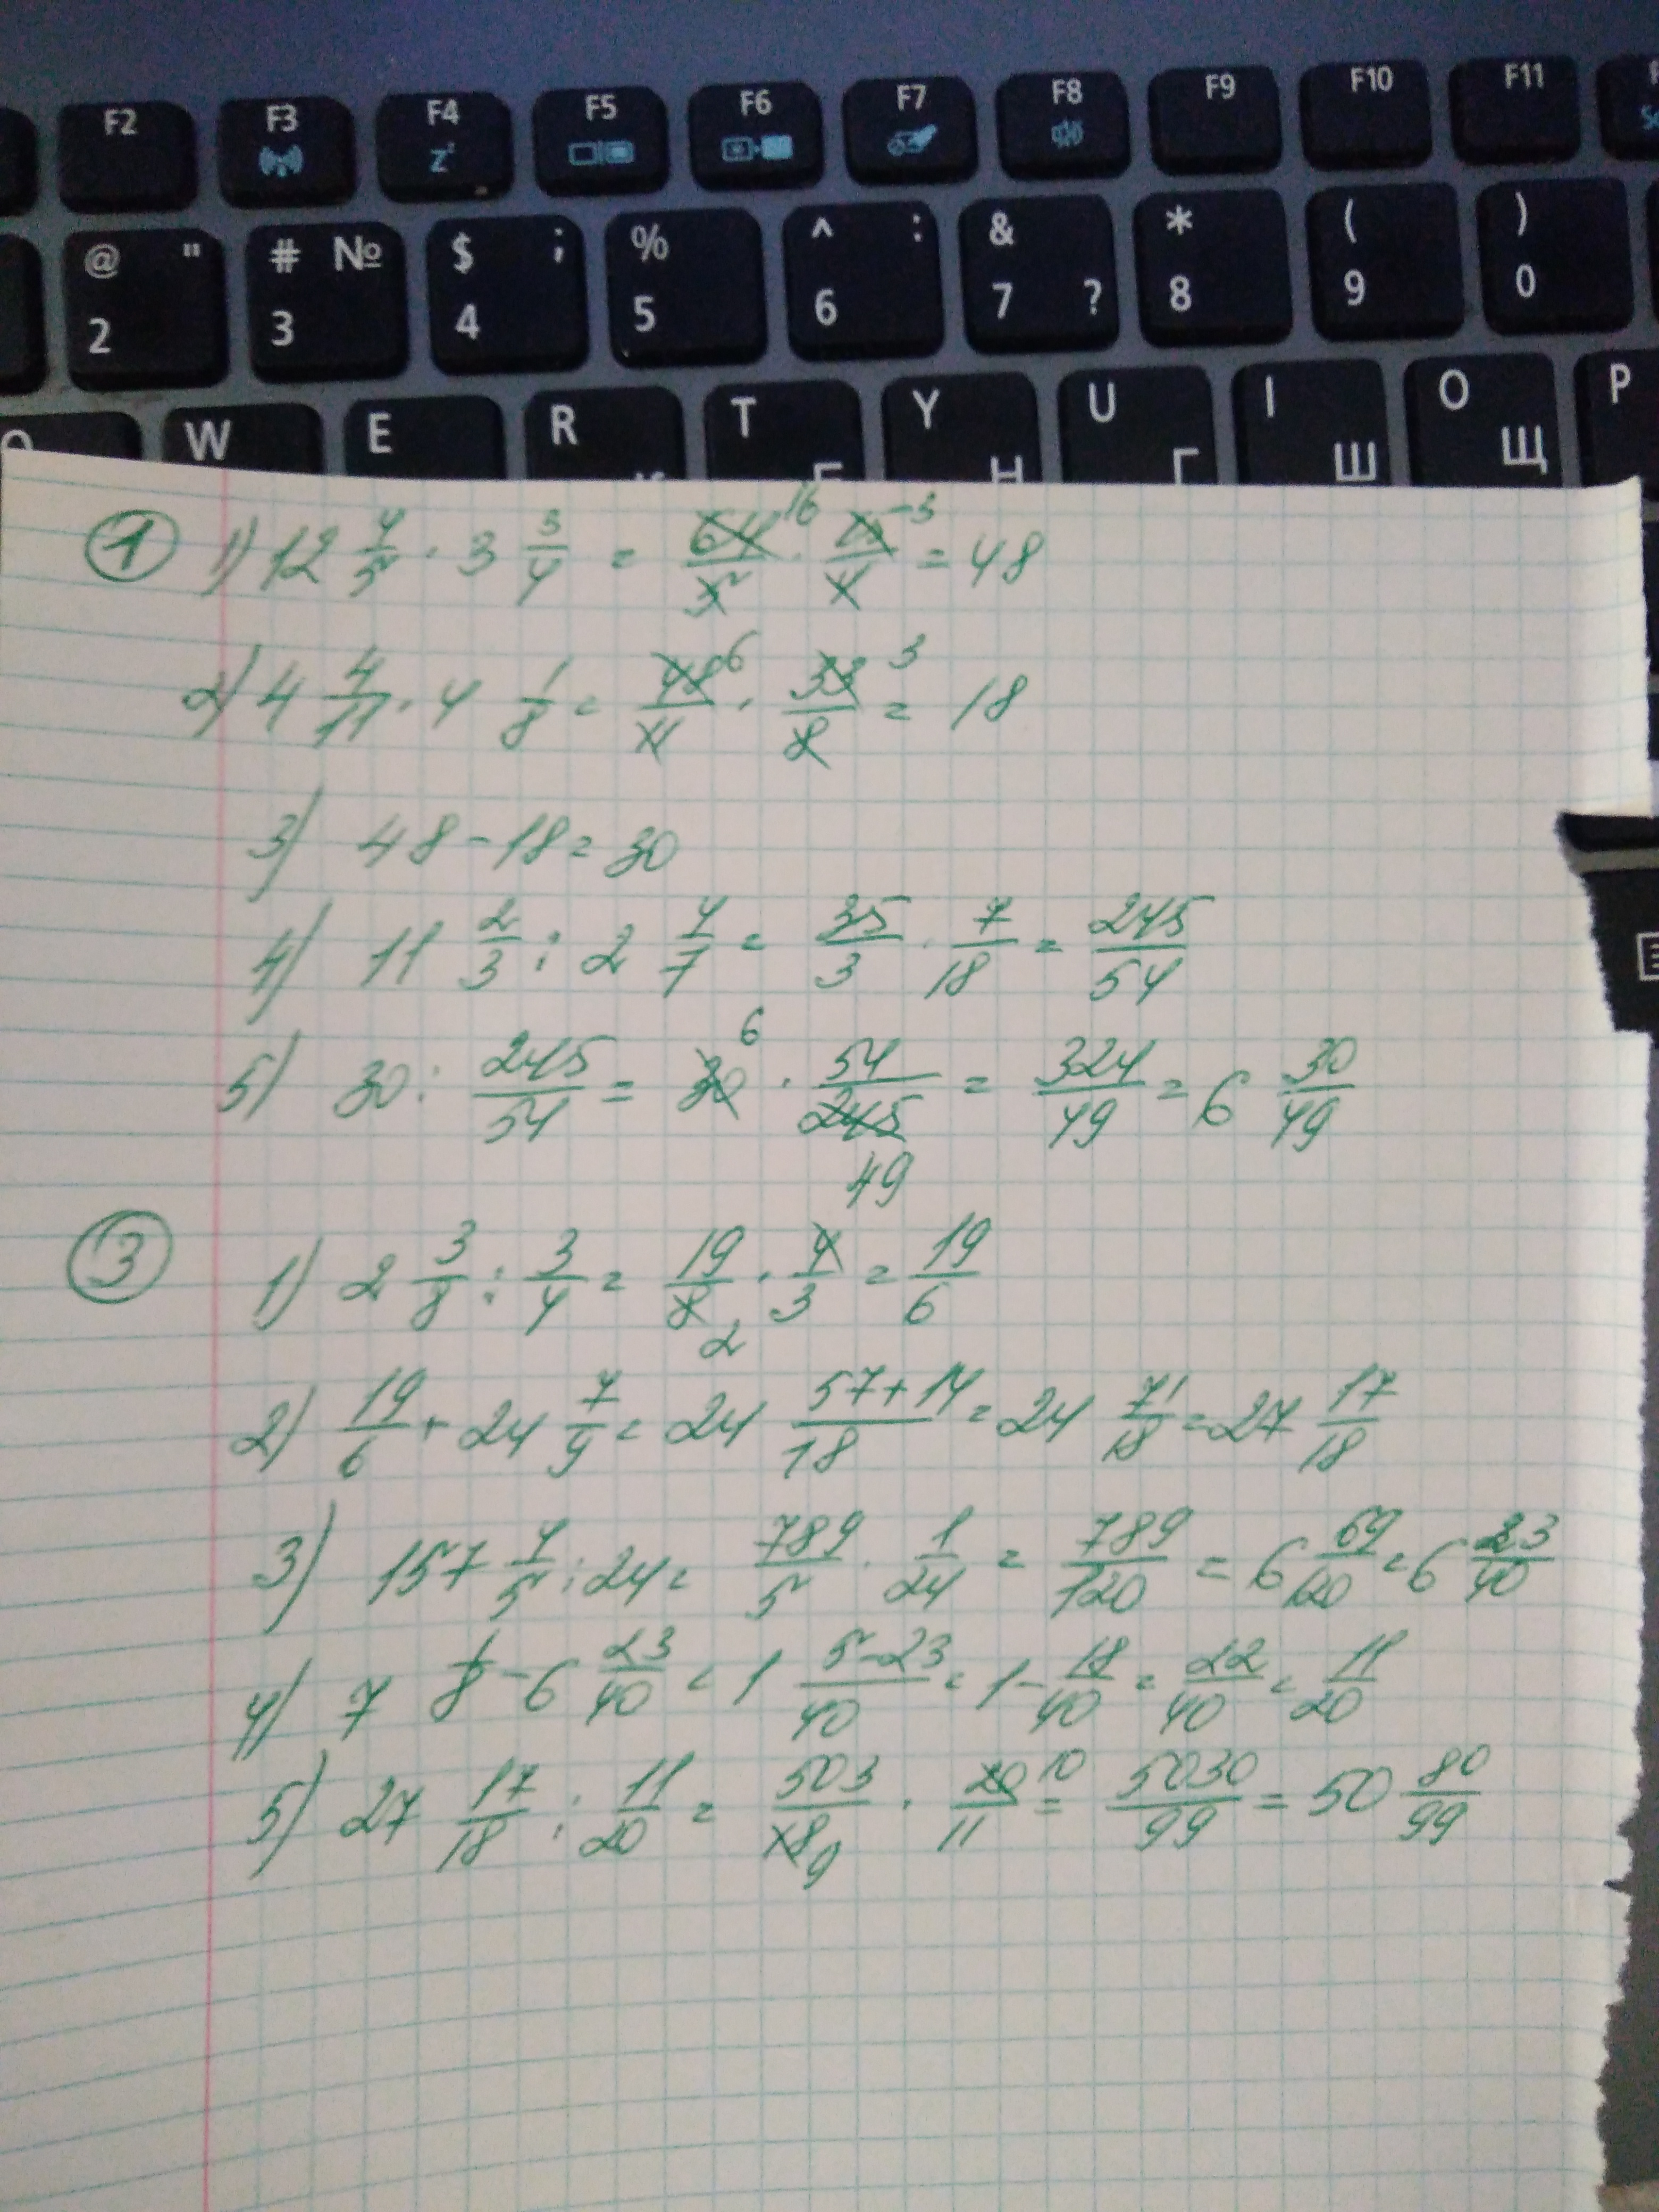 F2 F3 F4 F5 F6 F7 F8 F9 F10 F11
Z
@ " # № $ ; % ^ : & * ( )
2 3 4 5 6 7 ? 8 9 0
W E R T Y U I O P
Н Г Ш Щ
① 1) 12 4/5 · 3 3/4 = 64/5 16 · 15/4 -3 = 48
2) 4 4/11 · 4 1/8 = 48/11 6 · 33/8 3 = 18
3) 48 - 18 = 30
4) 11 2/3 : 2 4/7 = 35/3 · 7/18 = 245/54
5) 30 : 245/54 = 30 6 · 54/245 49 = 324/49 = 6 30/49
③ 1) 2 3/8 : 3/4 = 19/8 2 · 4/3 = 19/6
2) 19/6 + 24 7/9 = 24 57+14/18 = 24 71/18 = 27 17/18
3) 157 4/5 : 24 = 789/5 · 1/24 = 789/120 = 6 69/120 = 6 23/40
4) 7 1/8 - 6 23/40 = 1 5-23/40 = 1 - 18/40 = 22/40 = 11/20
5) 27 17/18 : 11/20 = 503/18 9 · 20/11 10 = 5030/99 = 50 80/99